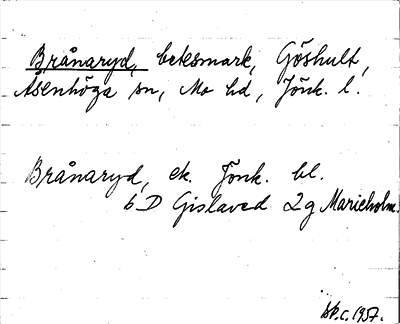 Brånaryd, betesmark, Göshult,
Åsenhöga sn, Mo hd, Jönk. l.
Brånaryd, ek. Jönk. bl.
6D Gislaved 2g Marieholm.
1957.